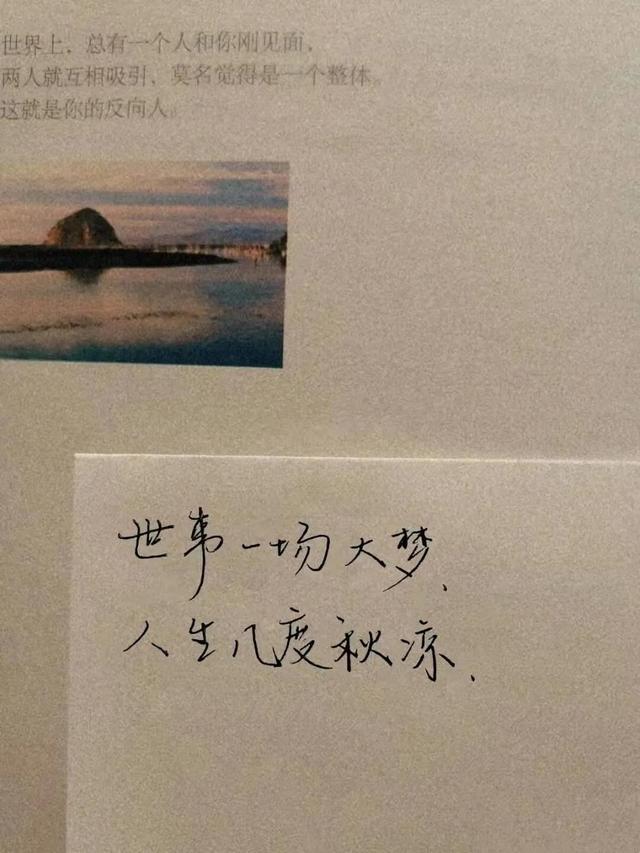 世界上，总有一个人和你刚见面，
两人就互相吸引、莫名觉得是一个整体。
这就是你的反向人。
世事一场大梦、
人生几度秋凉、